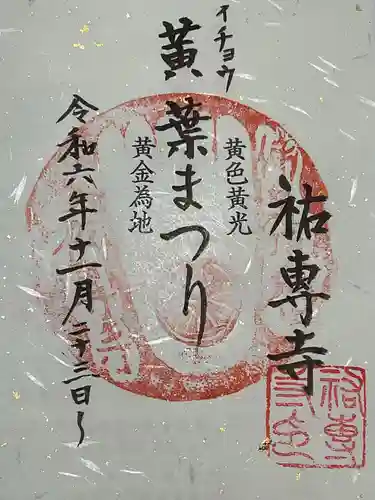 イチョウ
黄葉まつり
黄色黄光
黄金為地
祐専寺
令和六年十一月二十三日〜